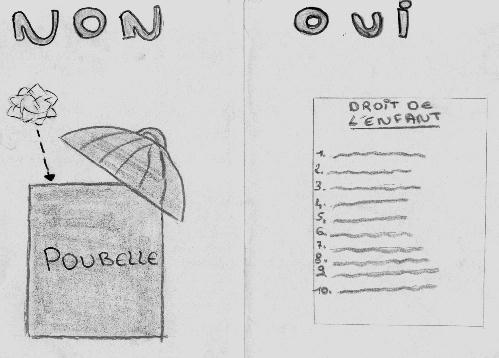 NON
POUBELLE
OUI
DROIT DE
L'ENFANT
1.
2.
3.
4.
5.
6.
7.
8.
9
10.